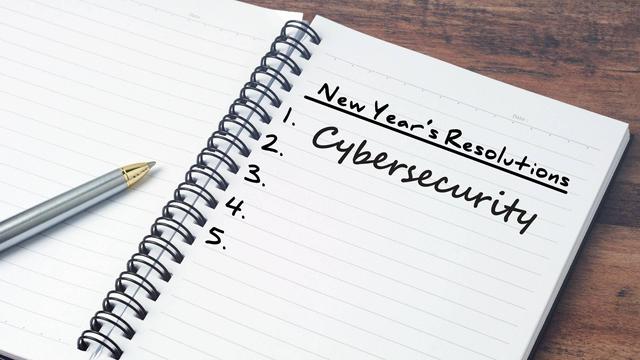 New Year's Resolutions
1. Cybersecurity
2.
3.
4.
5.